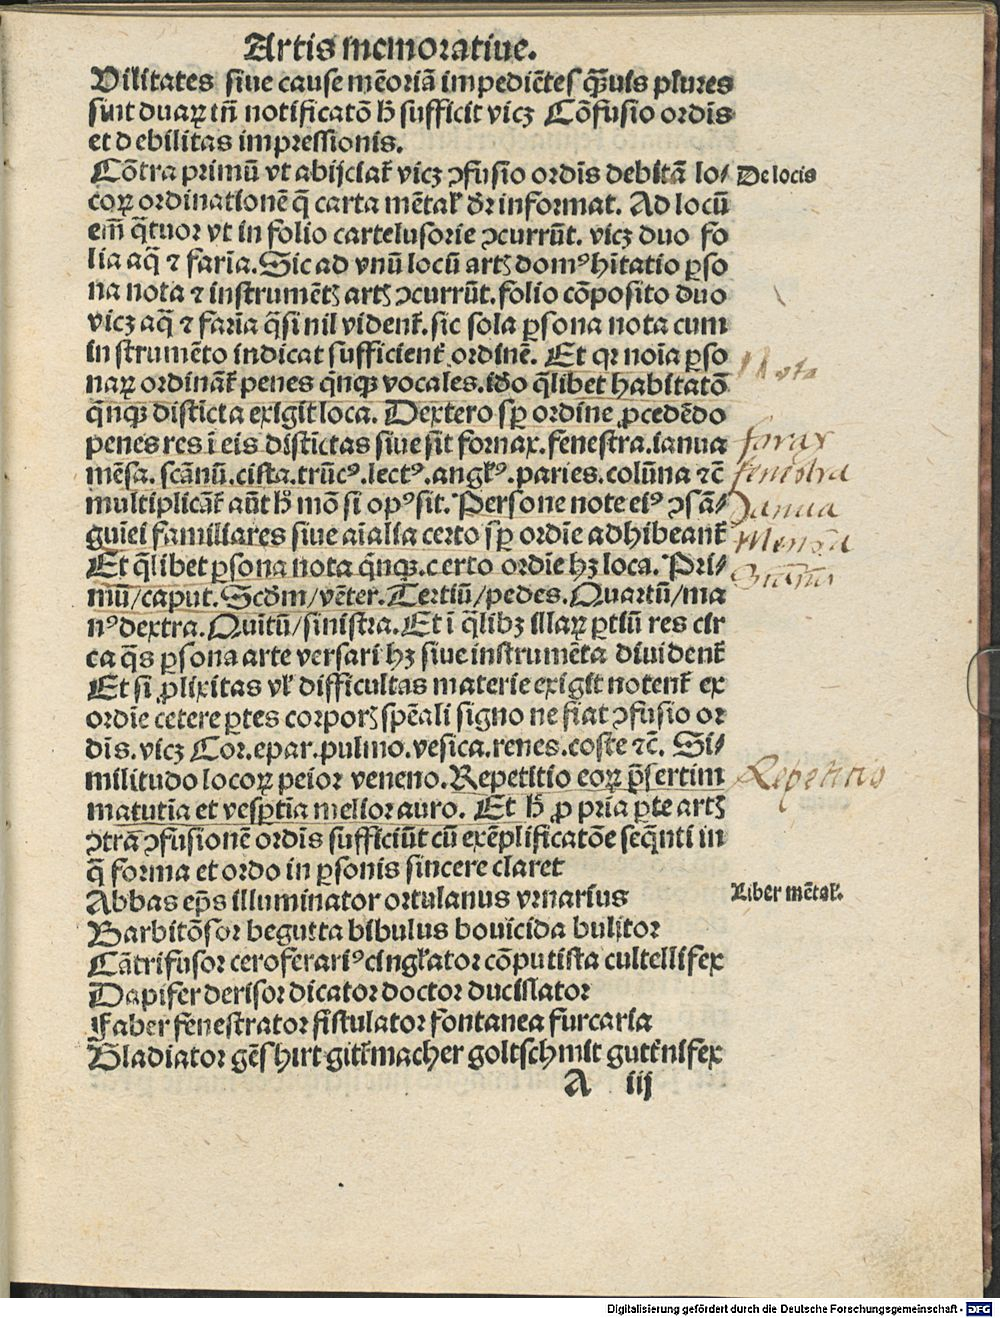 Artis memoratiue.
Vilitates siue cause mẽoriã impediẽtes q̃uis plures
sint duaꝝ tñ notificatõ hˀ sufficit vicꝫ Cõfusio ordĩs
et debilitas impressionis.
Cõtra primũ vt abijciatˀ vicꝫ ↄfusio ordĩs debitã lo/ De locis
coꝝ ordinationẽ q̃ carta mẽtalˀ dˀr informat. Ad locũ
em̃ q̃tuor vt in folio cartelusorie ↄcurrũt. vicꝫ duo fo
lia aq̃ ⁊ farĩa. Sic ad vnũ locũ artꝭ domꝰ hĩtatio ꝑso
na nota ⁊ instrumẽtꝭ artꝭ ↄcurrũt. folio cõposito duo
vicꝫ aq̃ ⁊ farĩa q̃si nil videntˀ. sic sola ꝑsona nota cum
instrumẽto indicat sufficientˀ ordinẽ. Et qꝛ noĩa ꝑso
naꝝ ordinãtˀ penes q̃nqꝫ vocales. iðo q̃libet habitatõ
q̃nqꝫ disticta exigit loca. Dextero sꝑ ordine ꝓcedẽdo
penes res ĩ eis distĩctas siue sĩt fornax. fenestra. ianua
mẽsa. scãnũ. cista. trũcꝰ. lectꝰ. anglˀꝰ. paries. colũna ⁊c̃
multiplicãtˀ aũt hˀ mõ si opꝰ sit. Persone note eiꝰ ↄsã/
guĩei familiares siue aĩalia certo sꝑ ordĩe adhibeantˀ
Et q̃libet ꝑsona nota q̃nqꝫ certo ordĩe hꝫ loca. Pri/
mũ/caput. Scðm/vẽter. Tertiũ/pedes. Quartũ/ma
nꝰ dextra. Quĩtũ/sinistra. Et ĩ q̃libꝫ illaꝝ ꝑtiũ res cir
ca q̃s ꝑsona arte versari hꝫ siue instrumẽta diuidentˀ
Et si ꝓlixitas vlˀ difficultas materie exigit notentˀ ex
ordĩe cetere ꝑtes corporꝭ spẽali signo ne fiat ↄfusio or
dĩs. vicꝫ Cor. epar. pulmo. vesica. renes. coste ⁊c̃. Si/
militudo locoꝝ peior veneno. Repetitio eoꝝ p̃sertim
matutĩa et vesꝑtĩa melior auro. Et hˀ ꝓ prĩa ꝑte artꝭ
ↄtrã ↄfusionẽ ordĩs sufficiũt cũ exẽplificatõe seq̃nti in
q̃ forma et ordo in ꝑsonis sincere claret
Abbas ep̃s illuminator ortulanus vrnarius Liber mẽtalˀ.
Barbitõsor begutta bibulus bouicida bulitor
Cãtrifusor ceroferariꝰ cinglˀator cõputista cultellifex
Dapifer derisor dicator doctor ducillator
Faber fenestrator fistulator fontanea furcaria
Gladiator gẽshirt gitˀmacher goltschmit guttˀnifex
A iij
Nota
forax
fenestra
Janua
Mensa
Scannũ
Repetitio
Digitalisierung gefördert durch die Deutsche Forschungsgemeinschaft - DFG